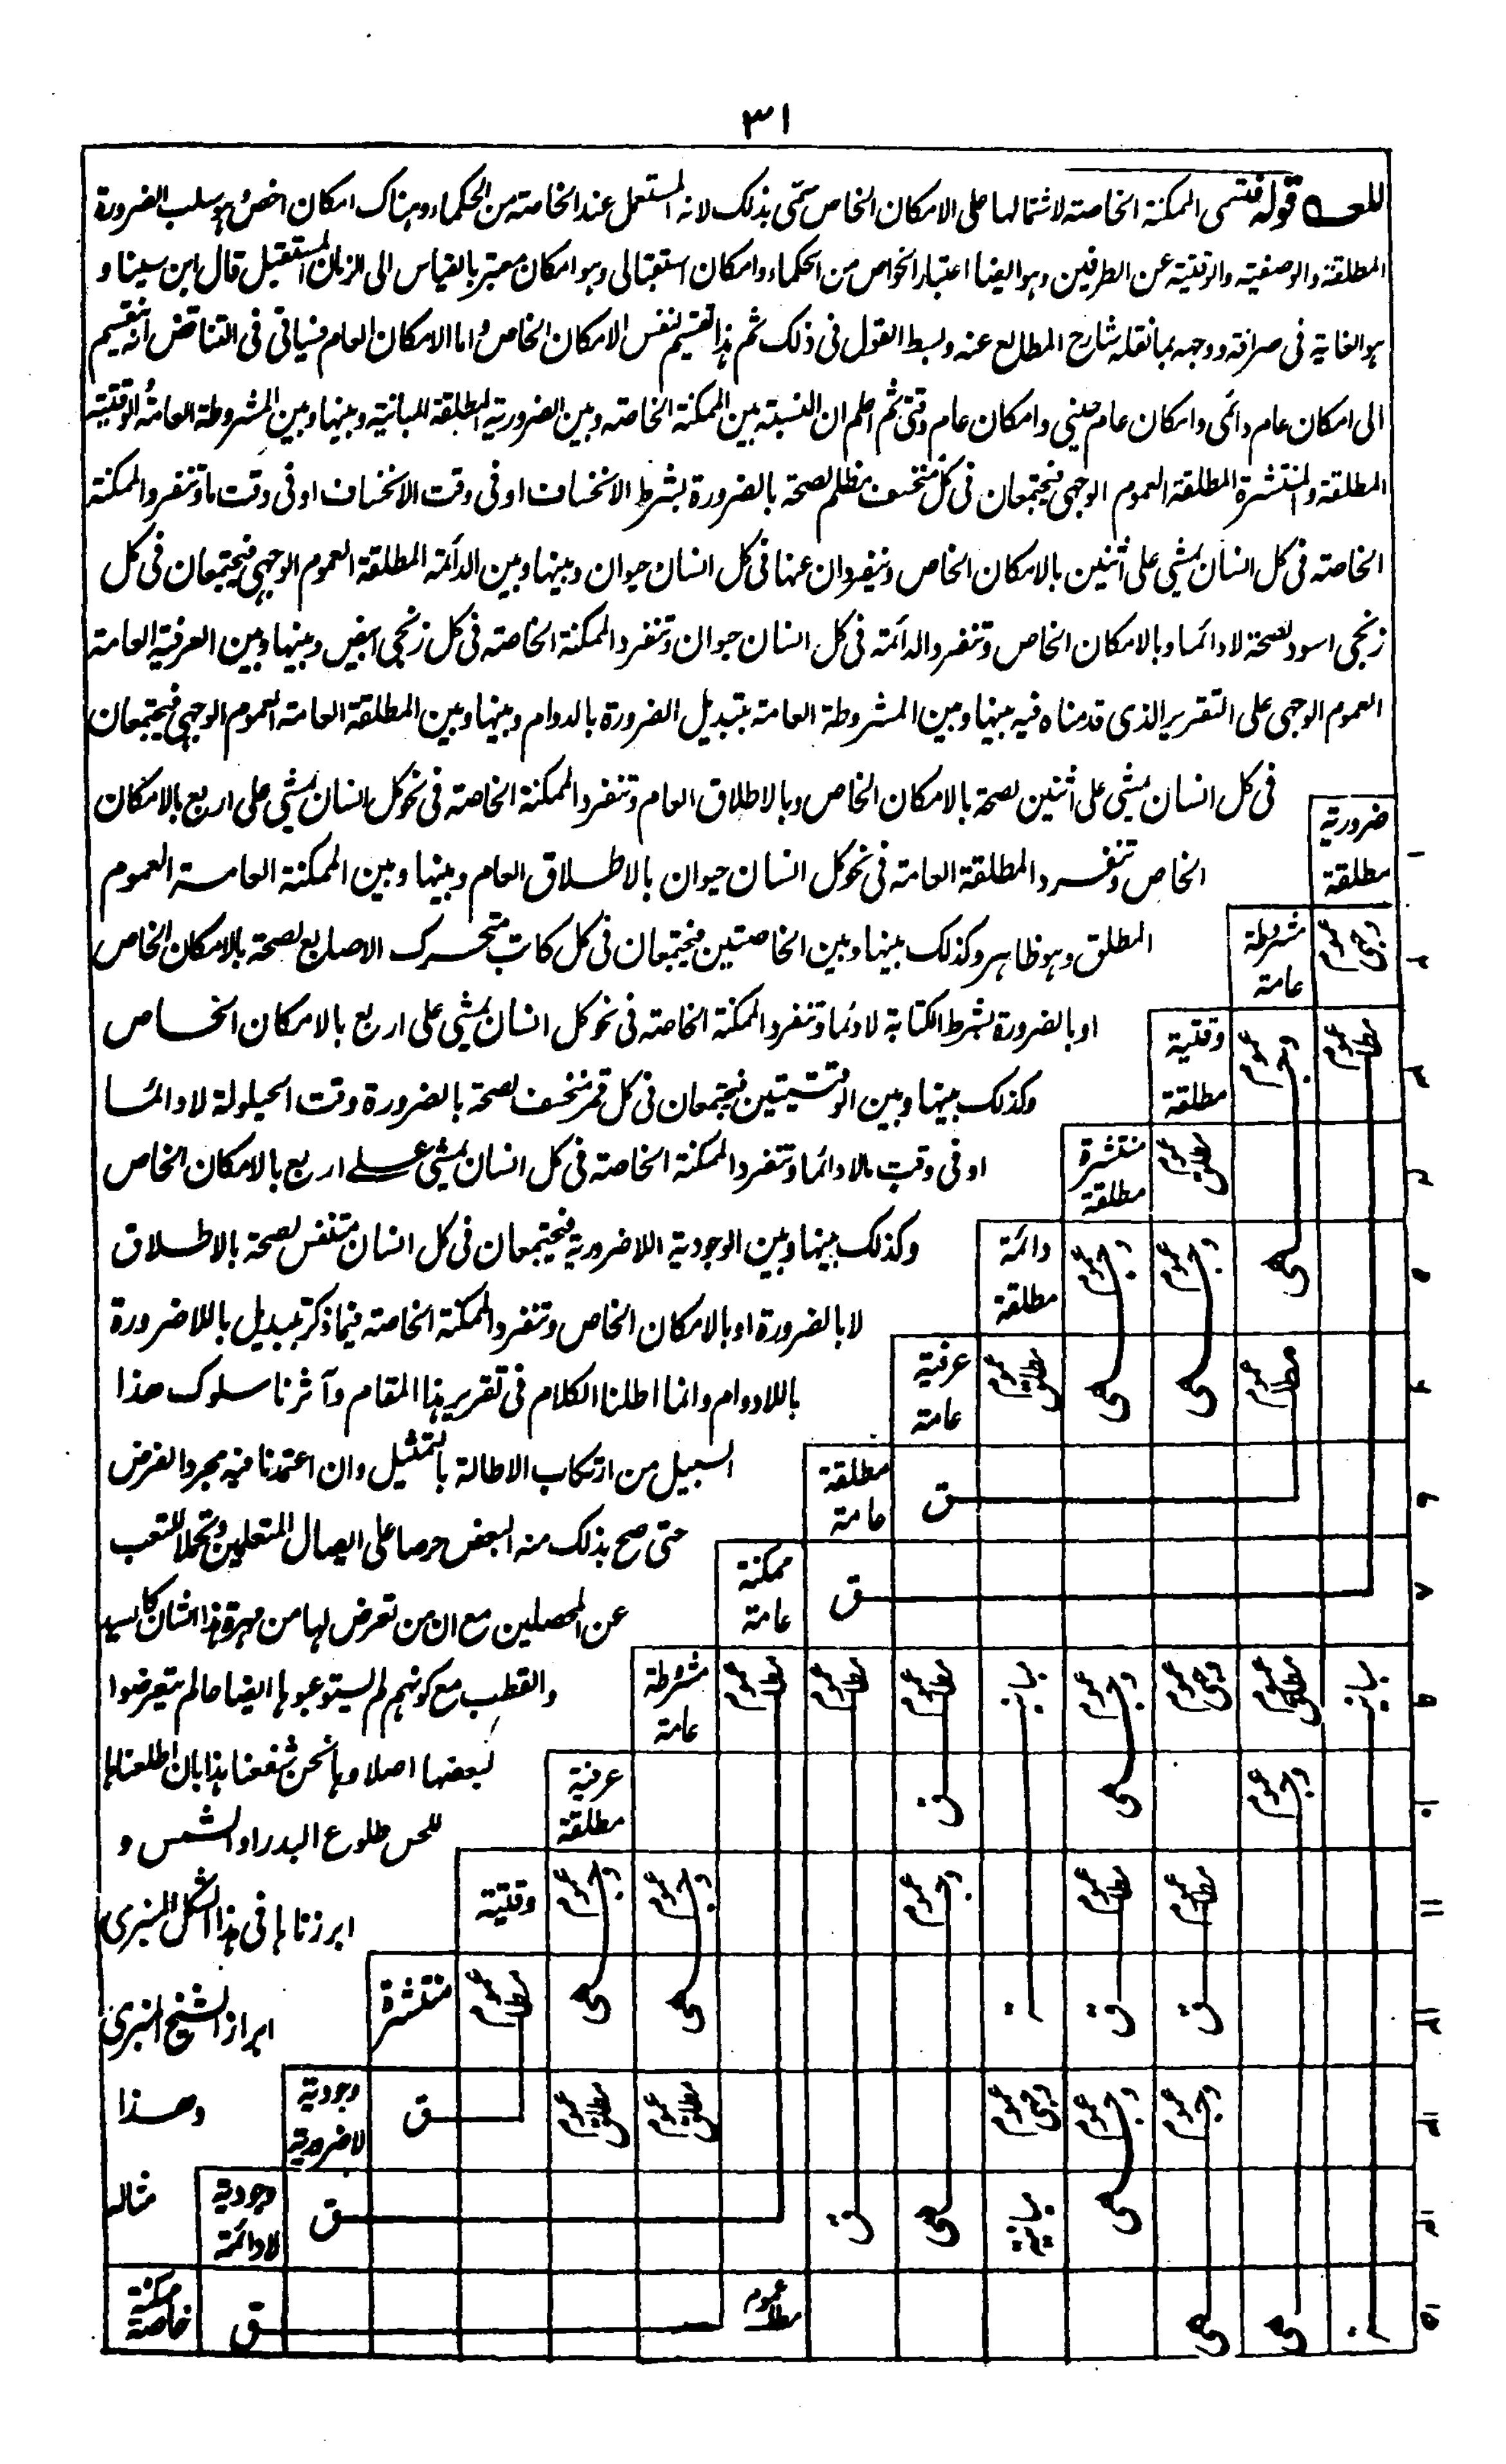 ٣١
قوله فتسمى الممكنة الخاصة لاشتمالها على الامكان الخاص سمّى بذلك لانه المستعمل عند الخاصة من الحكماء وهناك امكان اخص وهو سلب الضرورة
المطلقة والوصفية والوقتية عن الطرفين وهو ايضا اعتبار الخواص من الحكماء وامكان استقبالى وهو امكان معتبر بالقياس الى الزمان المستقبل قال ابن سينا و
هو الغاية فى صرافته ووجهه بما نقله شارح المطالع عنه وبسط القول فى ذلك ثم هذا تقسيم لنفس الامكان الخاص واما الامكان العام فسياتى فى التناقض انه تقسيم
الى امكان عام دائمى وامكان عام حينى وامكان عام وقتى ثم اعلم ان النسبة بين الممكنة الخاصة وبين الضرورية المطلقة المباينة وبينها وبين المشروطة العامة والوقتية
المطلقة والمنتشرة المطلقة العموم الوجهى فيجتمعان فى كل منخسف مظلم لصحة بالضرورة بشرط الانخساف او فى وقت الانخساف او فى وقت ما وتنفرد الممكنة
الخاصة فى كل انسان يمشى على اثنين بالامكان الخاص وينفردان عنها فى كل انسان حيوان وبينها وبين الدائمة المطلقة العموم الوجهى فيجتمعان فى كل
زنجى اسود لصحة لا دائما وبالامكان الخاص وتنفرد الدائمة فى كل انسان حيوان وتنفرد الممكنة الخاصة فى كل زنجى ابيض وبينها وبين العرفية العامة
العموم الوجهى على التقرير الذى قدمناه فيه بينها وبين المشروطة العامة بتبديل الضرورة بالدوام وبينها وبين المطلقة العامة العموم الوجهى فيجتمعان
فى كل انسان يمشى على اثنين لصحة بالامكان الخاص وبالاطلاق العام وتنفرد الممكنة الخاصة فى نحو كل انسان يمشى على اربع بالامكان
الخاص وتنفرد المطلقة العامة فى نحو كل انسان حيوان بالاطلاق العام وبينها وبين الممكنة العامة العموم
المطلق وهو ظاهر وكذلك بينها وبين الخاصتين فيجتمعان فى كل كاتب متحرك الاصابع لصحة بالامكان الخاص
او بالضرورة بشرط الكتابة لا دائما وتنفرد الممكنة الخاصة فى نحو كل انسان يمشى على اربع بالامكان الخاص
وكذلك بينها وبين الوقتيتين فيجتمعان فى كل قمر منخسف لصحة بالضرورة وقت الحيلولة لا دائما
او فى وقت ما لا دائما وتنفرد الممكنة الخاصة فى كل انسان يمشى على اربع بالامكان الخاص
وكذلك بينها وبين الوجودية اللاضرورية فيجتمعان فى كل انسان متنفس لصحة بالاطلاق
لا بالضرورة او بالامكان الخاص وتنفرد الممكنة الخاصة فيما ذكر بتبديل باللاضرورة
باللادوام وانما اطلنا الكلام فى تقرير هذا المقام وآثرنا سلوك هذا
السبيل من ارتكاب الاطالة بالتمثيل وان اعتمدنا فيه مجرد الفرض
حتى صح بذلك منه البعض حرصا على ايصال المتعلمين وتحملا للتعب
عن المحصلين مع ان من تعرض لها من مهرة هذا الشان كالسيد
والقطب مع كونهم لم يستوعبوها ايضا ما لم يتعرضوا
لبعضها اصلا وها نحن شفعنا هذا بان اطلعناها
للحس طلوع البدر او الشمس و
ابرزناها فى هذا الشكل المنبرى
ابراز الشيخ المنبرى
وهذا
مثاله
ضرورية مطلقة
١
مشروطة عامة
٢
وقتية مطلقة
٣
منتشرة مطلقة
٤
دائمة مطلقة
٥
عرفية عامة
٦
مطلقة عامة
ق
ممكنة عامة
ق
٨
مشروطة عامة
عرفية مطلقة
١٠
وقتية
١١
منتشرة
١٢
وجودية لاضرورية
ق
١٣
وجودية لادائمة
ق
١٤
ممكنة خاصة
ق
عموم مطلق
١٥